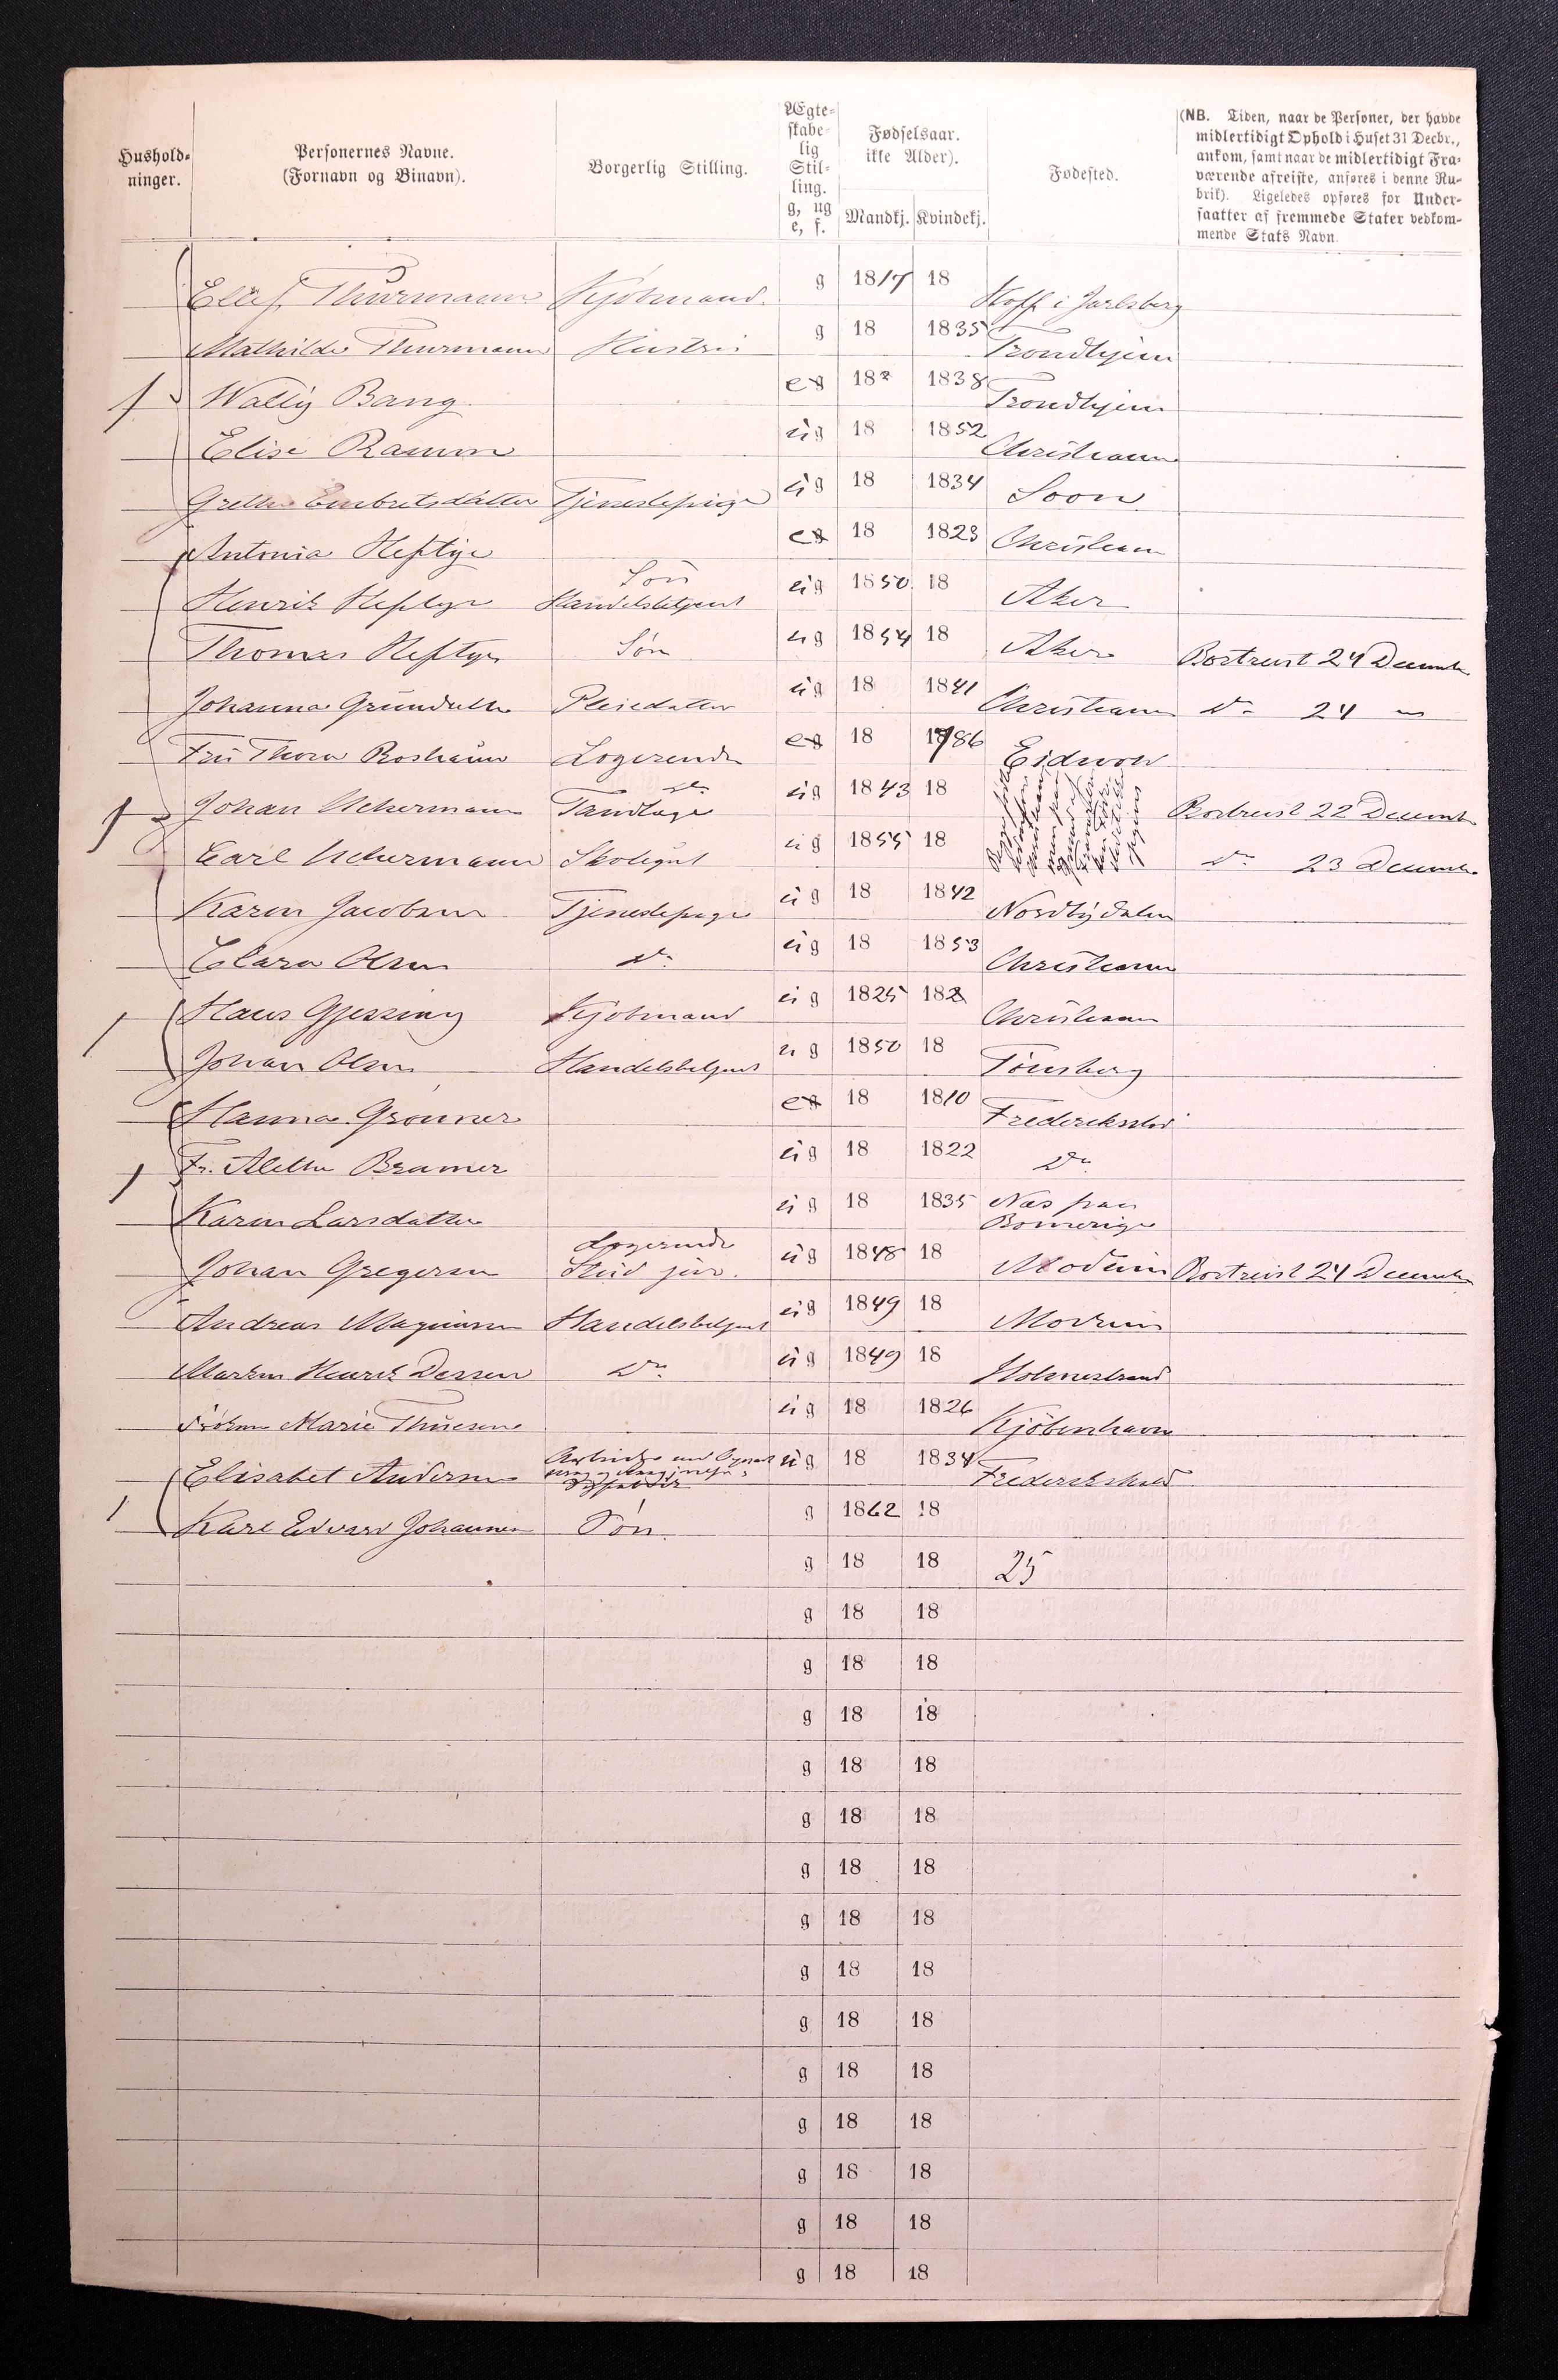 Hushold-
ninger.
Personernes Navne.
(Fornavn og Binavn).
Borgerlig Stilling.
Ægte-
skabe-
lig
Stil-
ling.
g, ug
e, f.
Fødselsaar.
ikke Alder).
Mandkj. Kvindekj.
Fødested.
(NB. Tiden, naar de Personer, der havde
midlertidigt Ophold i Huset 31 Decbr.,
ankom, samt naar de midlertidigt Fra-
værende afreiste, anføres i denne Ru-
brik). Ligeledes opføres for Under-
saatter af fremmede Stater vedkom-
mende Stats Navn.
Ellef Thurmann Kjöbmand g 1817 18 Hoff i Jarlsberg
Mathilde Thurmann Hustru g 18 1835 Trondhjem
Wally Bang e 18 1838 Trondhjem
Elise Ramm ug 18 1852 Christiania
Grethe Embretsdatter Tjenestepige ug 18 1834 Soon
Antonia Heftye e 18 1823 Christiania
Henrik Heftye Søn Handelsbetjent ug 1850 18 Aker
Thomas Heftye Søn ug 1854 18 Aker Bortreist 24 December
Johanna Pleiedatter ug 18 1841 Christiania do 24 "
Fru Thora Logerende e 18 1786 Eidsvold
Johan Uchermann Tandlæge ug 1843 18 Bortreist 22 December
Carl Uchermann Skolegut ug 1855 18 do 23 December
Karen Jacobsen Tjenestepige ug 18 1842
Clara Olsen do ug 18 1853 Christiania
Hans Gjessing Kjöbmand ug 1825 18 Christiania
Johan Olsen Handelsbetjent ug 1850 18 Tönsberg
Hanna Grönner e 18 1810 Frederikstad
Fr. Alethe Bramer ug 18 1822 do
Karen Larsdatter ug 18 1835 Næs paa Romerige
Johan Gregersen Logerende Stud jur. ug 1848 18 Modum Bortreist 24 December
Andreas Magnussen Handelsbetjent ug 1849 18 Modum
Henrik Dessen do ug 1849 18 Holmestrand
Marie Thuesen ug 18 1826 Kjöbenhavn
Elisabet Andersen ug 18 1834 Frederikshald
Karl Edvard Johannes Søn g 1862 18
g 18 18 25
g 18 18
g 18 18
g 18 18
g 18 18
g 18 18
g 18 18
g 18 18
g 18 18
g 18 18
g 18 18
g 18 18
g 18 18
g 18 18
g 18 18